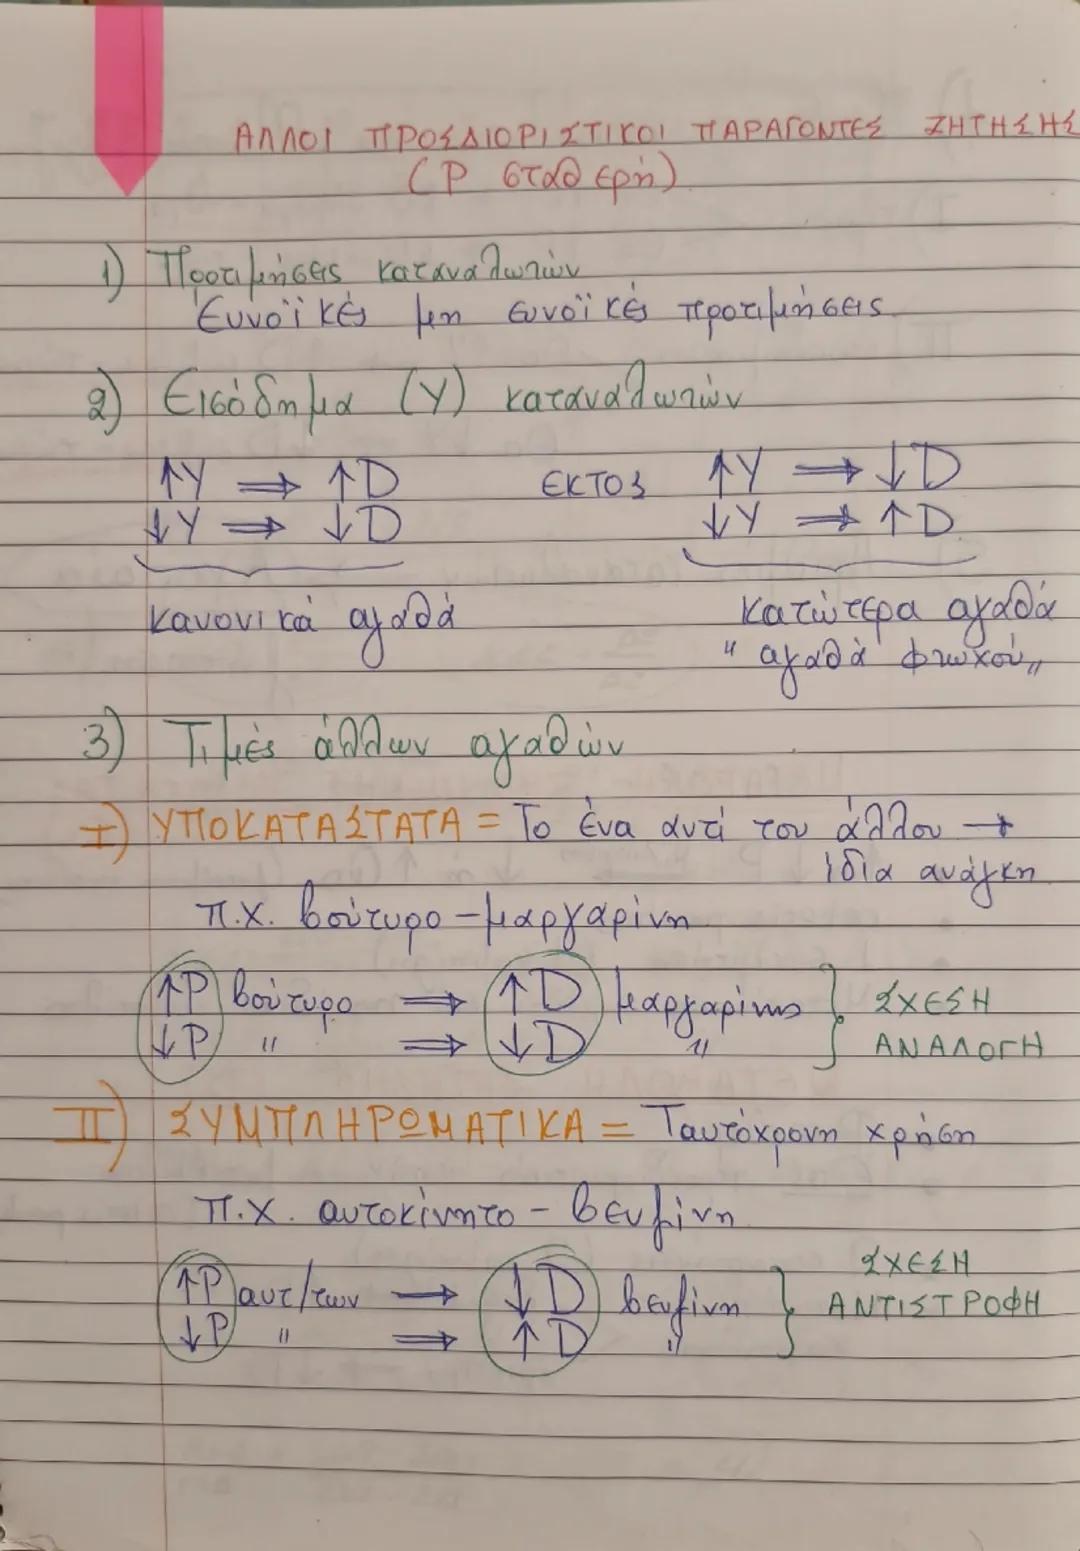 ΑΛΛΟΙ ΠΡΟΣΔΙΟΡΙΣΤΙΚΟΙ ΠΑΡΑΓΟΝΤΕΣ ΖΗΤΗΣΗΣ
(P σταθερή)
1) Προτιμήσεις καταναλωτών
Ευνοϊκές μη ευνοϊκές προτιμήσεις
2) Εισόδημα (Y) καταναλωτών
↑Y ⇒ ↑D ΕΚΤΟΣ ↑Y ⇒ ↓D
↓Y ⇒ ↓D ↓Y ⇒ ↑D
κανονικά αγαθά κατώτερα αγαθά
"αγαθά φτωχού"
3) Τιμές άλλων αγαθών
I) ΥΠΟΚΑΤΑΣΤΑΤΑ = Το ένα αντί του άλλου →
ίδια ανάγκη
π.χ. βούτυρο - μαργαρίνη
↑P βούτυρο ⇒ ↑D μαργαρίνης } ΣΧΕΣΗ
↓P " ⇒ ↓D " ΑΝΑΛΟΓΗ
II) ΣΥΜΠΛΗΡΩΜΑΤΙΚΑ = Ταυτόχρονη χρήση
π.χ. αυτοκίνητο - βενζίνη
↑P αυτ/των → ↓D βενζίνη } ΣΧΕΣΗ
↓P " ⇒ ↑D " ΑΝΤΙΣΤΡΟΦΗ